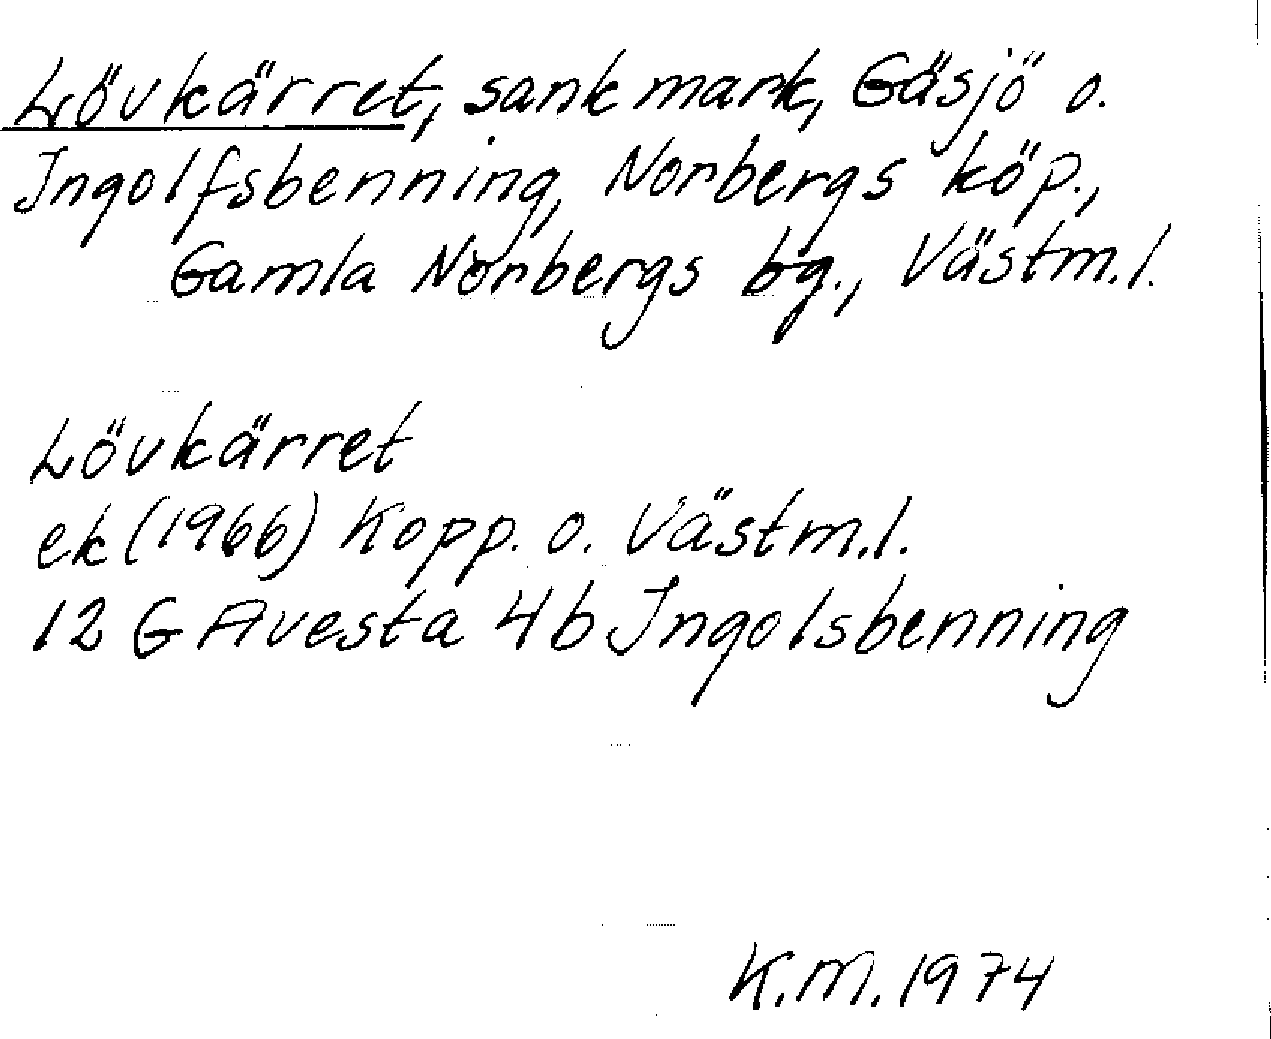 Lövkärret, sank mark, Gäsjö o.
Ingolfsbenning, Norbergs köp.,
Gamla Norbergs bg., Västm.l.
Lövkärret
ek (1966) Kopp. o. Västm.l.
12 G Avesta 4b Ingolsbenning
K.M. 1974